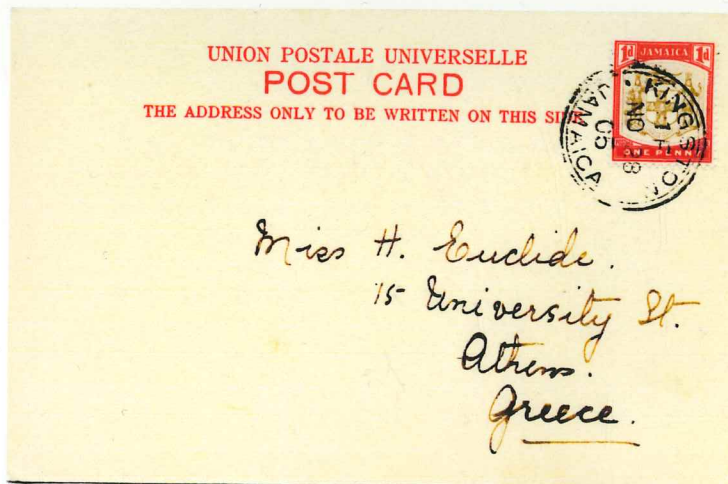 UNION POSTALE UNIVERSELLE
POST CARD
THE ADDRESS ONLY TO BE WRITTEN ON THIS
1d JAMAICA 1d
ONE PENNY
KINGSTON
NO 28
05
JAMAICA
Miss H. Euclide.
15 University St.
Athens.
Greece.